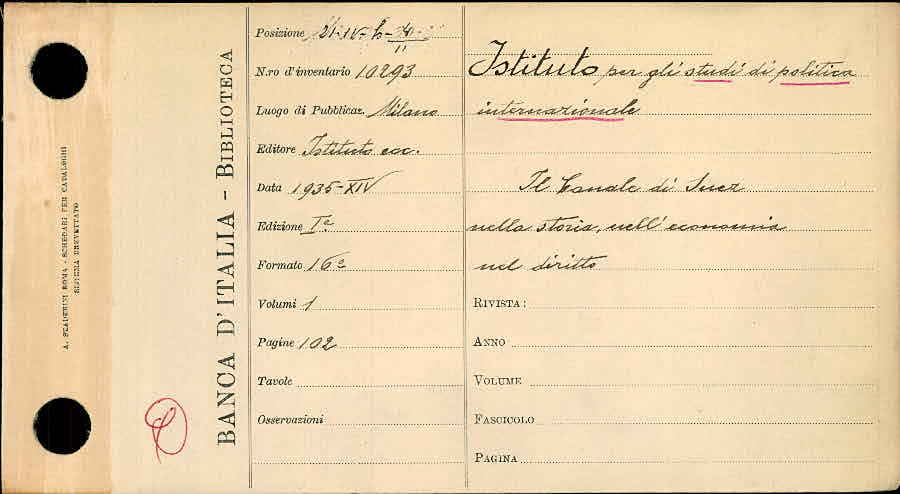 A. STADERINI ROMA - SCHEDARI PER CATALOGHI
SISTEMA BREVETTATO
BANCA D'ITALIA - BIBLIOTECA
Posizione
N.ro d'inventario 10293
Luogo di Pubblicaz. Milano
Editore Istituto ecc.
Data 1935-XIV
Edizione Iª
Formato 16º
Volumi 1
Pagine 102
Tavole
Osservazioni
Istituto per gli studi di politica
internazionale
Il Canale di Suez
nella storia, nell'economia
nel diritto
RIVISTA:
ANNO
VOLUME
FASCICOLO
PAGINA